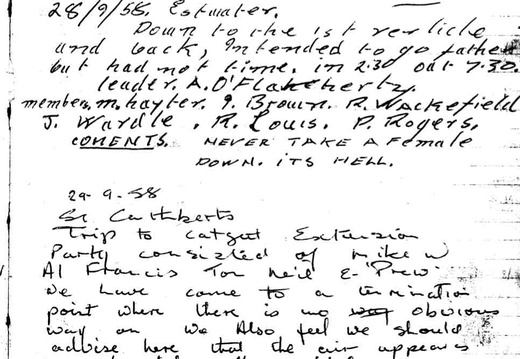 28/9/58. Estwater.
Down to the 1st verticle
and back, Intended to go father
but had not time. in 2.30 out 7.30.
leader. A. O'Flaherty.
members, M. Hayter. I. Brown. R. Wackefield
J. Wardle, R. Louis. P. Rogers,
COMENTS. NEVER TAKE A Female
DOWN. ITS HELL.
29-9-58
St Cuthberts
Trip to Catgut Extension
Party consisted of Mike W
Al Francis Tom Neil &
We have come to a termination
point where there is no obvious
way on we Also feel we should
advise here that the air appears